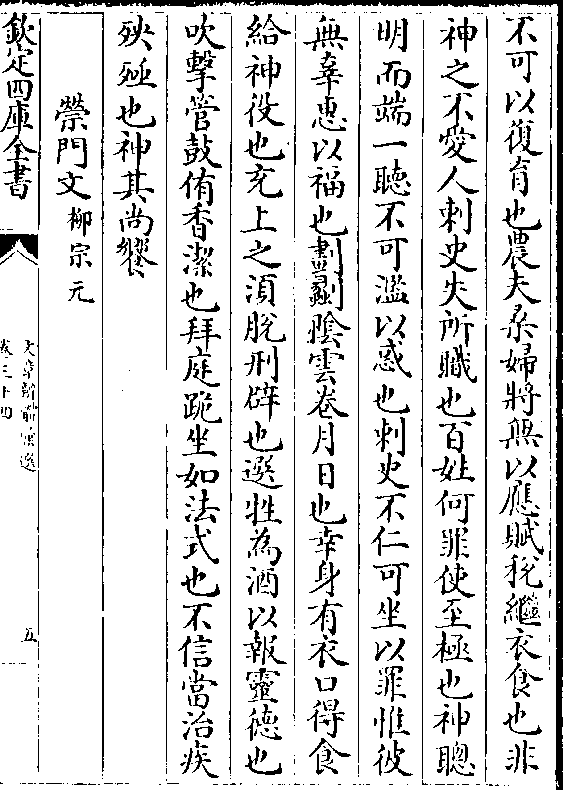 不可以復育也農夫桑婦將無以應賦稅繼衣食也非
神之不愛人刺史失所職也百姓何罪使至極也神聰
明而端一聽不可濫以惑也刺史不仁可坐以罪惟彼
無辜惠以福也劃劙陰雲卷月日也幸身有衣口得食
給神役也充上之須脫刑辟也選牲為酒以報靈德也
吹擊管鼓侑香潔也拜庭跪坐如法式也不信當治疾
殃殛也神其尚饗
禜門文 柳宗元
欽定四庫全書
文章辨體彙選
卷三十四
五